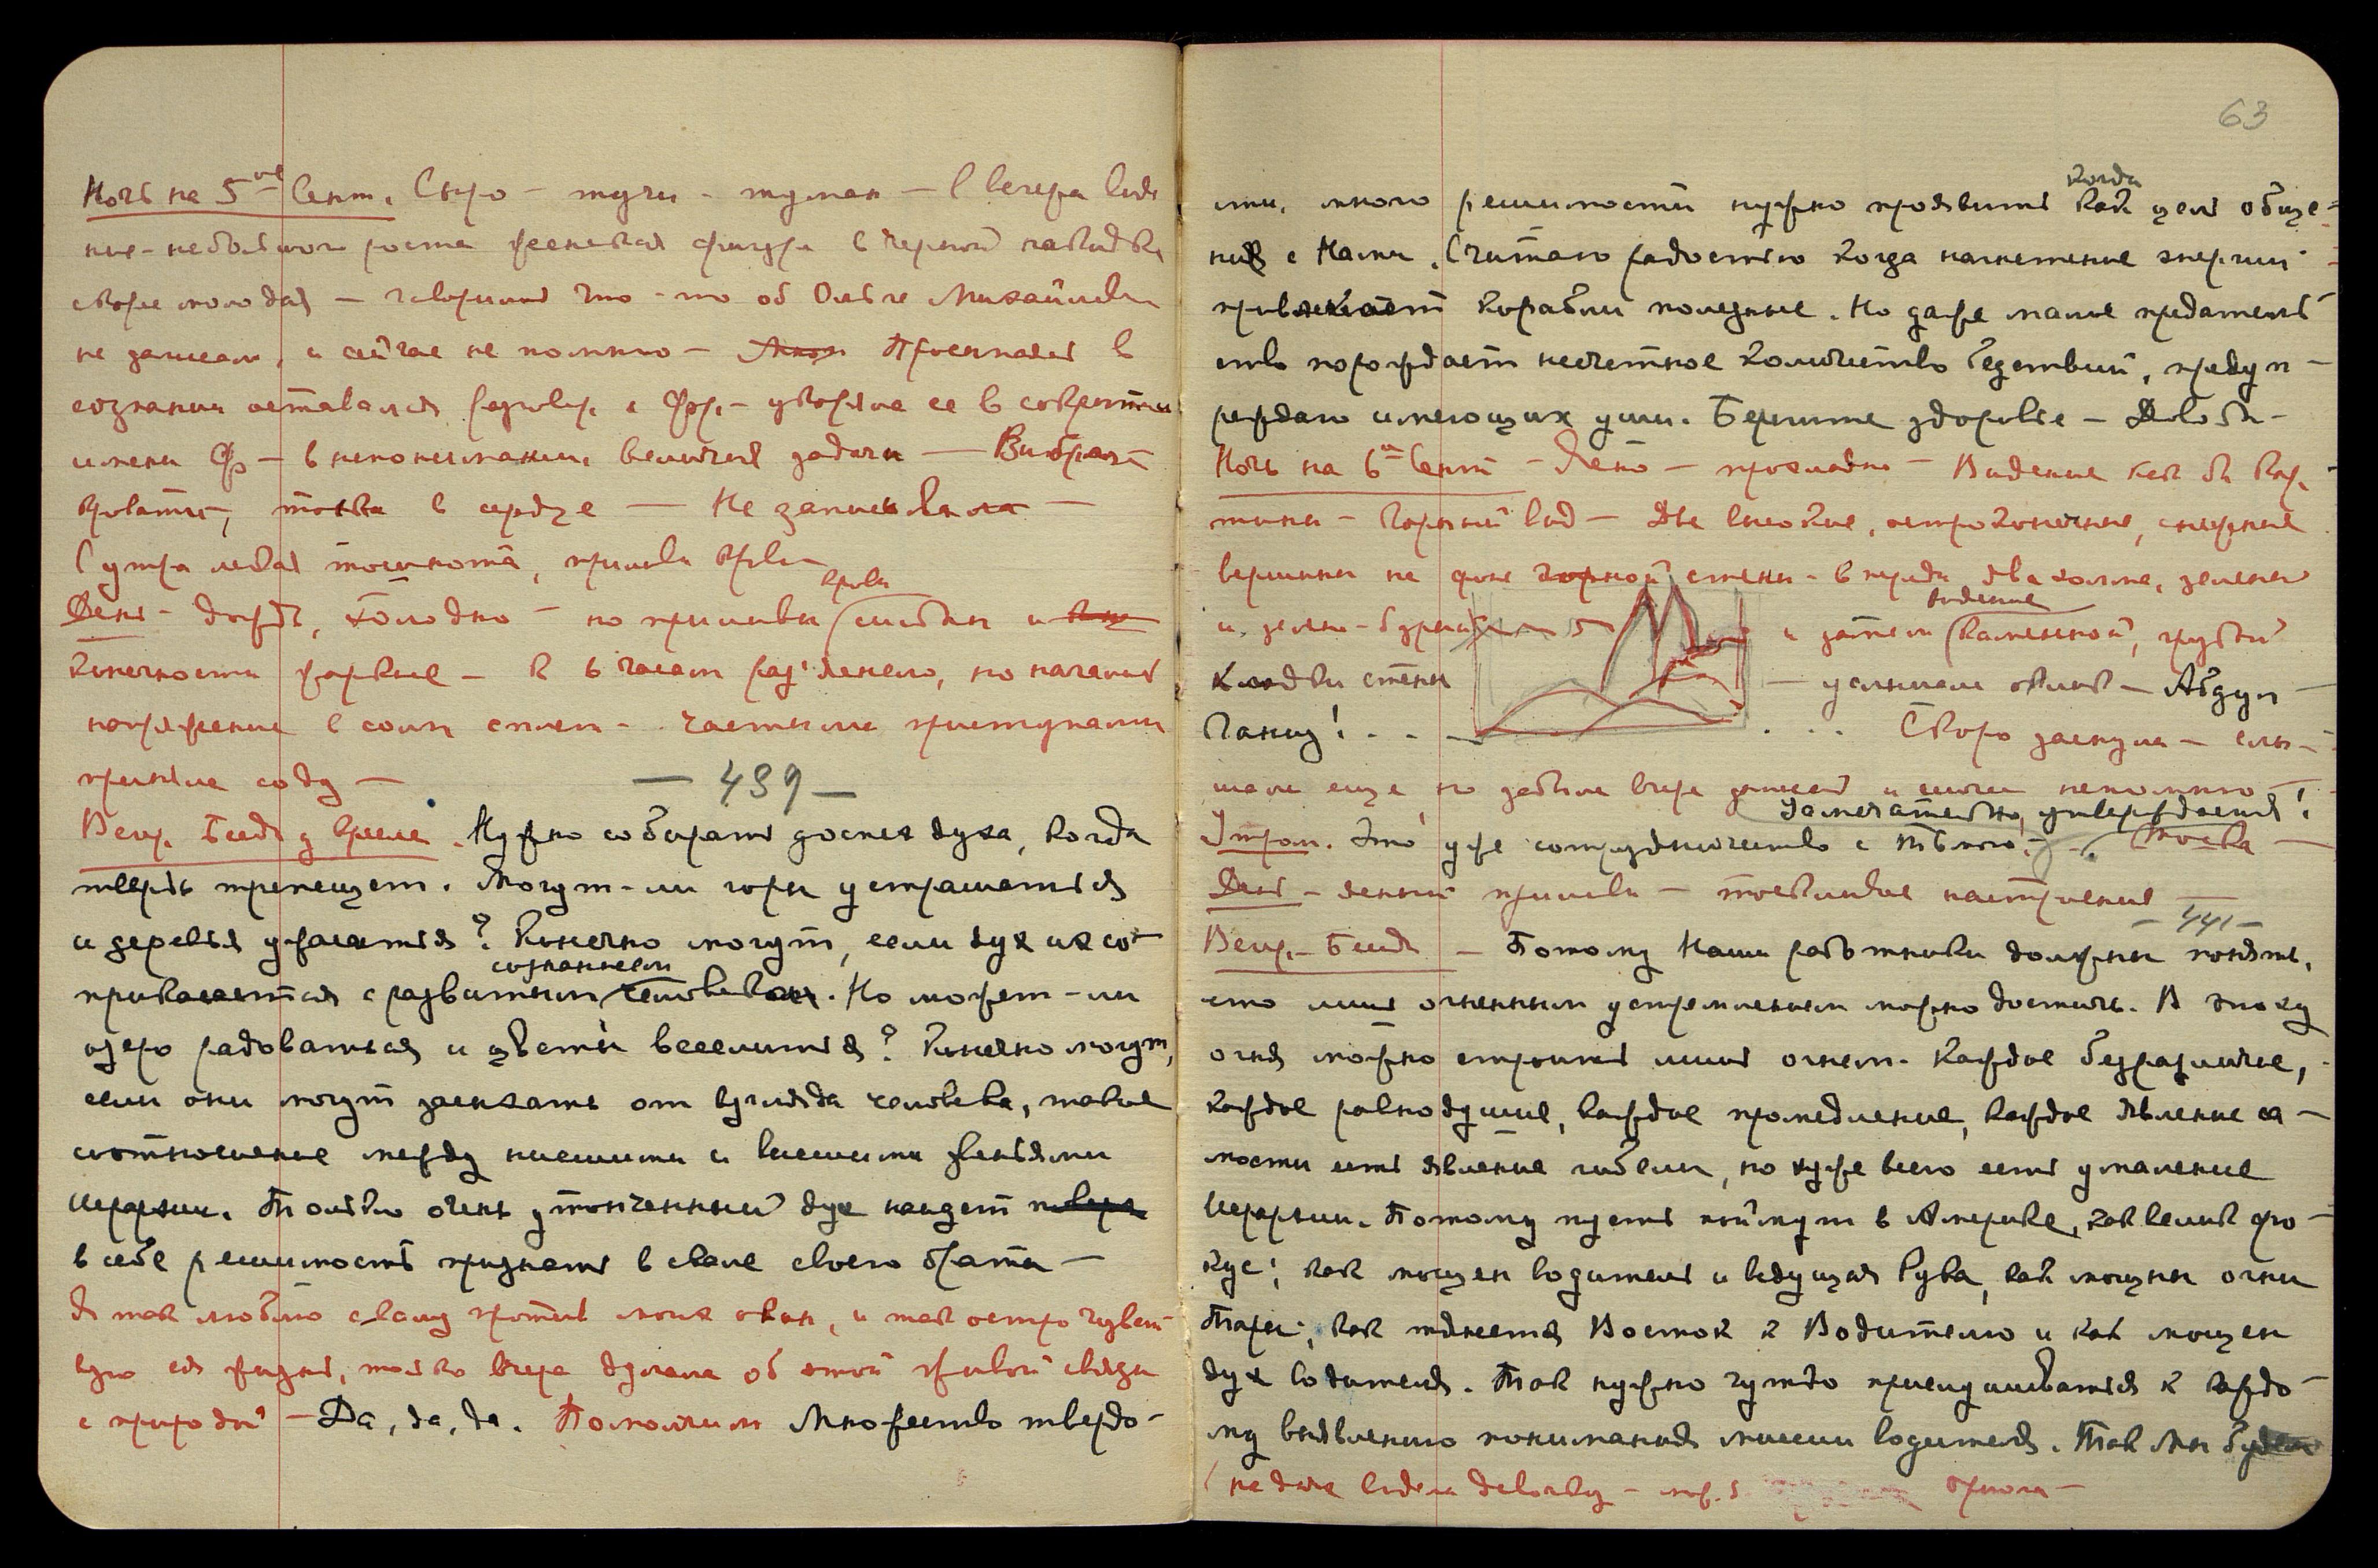 Ночь на 5ое Сент. Сыро – тучи – туман – С вечера виде
ние – небольшого роста женская фигура в черной накидке
скорее молодая – говорила что-то об Ольге Михайловне
не записала, и сейчас не помню – Проснулась в
сознании оставался разговор с Фр. – укоряла ее в сокрытии
имени Ф – в непонимании величия задачи – Вибрации
кровати, тоска в сердце – Не записывала –
С утра легкая тошнота, приливы крови
День – дождь, холодно – но приливы крови сильны и
конечности жаркие – К 6 часам раз'яснело, но началось
напряжение в солн. сплет. – частыми приступами
приняла соду – – 439 –
Веч. Беседа у Вреле. Нужно собирать доспех духа, когда
твердь трепещет. Могут-ли горы устрашаться
и деревья ужасаться? Конечно могут, если дух их со-
прикасается с развитым сознанием. Но может-ли
озеро радоваться и цветы веселиться? Конечно могут,
если они могут засыхать от взгляда человека, такое
соотношение между низшими и высшими звеньями
Иерархии. Только очень утонченный дух найдет
в себе решимость признать в скале своего брата –
Я так люблю скалу против моих окон, и так остро чувст-
вую ея жизнь, только вчера думала об этой живой связи
с природой – Да, да, да. Помолчим Множество твердо-
63
сти, много решимости нужно проявить когда как цель обще-
ния с Нами. Считаю радостью когда нагнетение энергии
привлекает корабли полезные. Но даже малое предатель-
ство порождает несчетное количество бедствий, предуп-
реждаю имеющих уши. Берегите здоровье – Довольно –
Ночь на 6ое Сент – Ясно – прохладно – Видение как бы кар-
тины – Горный вид – Две высокие, остроконечные, снежные
вершины на фоне горной стены – впереди два холма, зеленый
и зелено-бурый и затем видение каменной, грубой
кладки стены – услышала оклик – Абдул
Ганид! . . . . . . Скоро заснула – слы-
шала еще, но забыла вчера записать и сейчас не помню –
Замечательно, утверждается!
Утром. Это уже сотрудничество с тьмою. Тоска –
День – ясный приливы – тоскливое настроение
– 441 –
Веч. – Беседа – Потому Наши работники должны понять,
что лишь огненным устремлением можно достичь. В эпоху
огня можно строить лишь огнем. Каждое безразличие,
каждое равнодушие, каждое промедление, каждое явление са-
мости есть явление гибели, но хуже всего есть умаление
Иерархии. Потому пусть поймут в Америке, как велик фо-
кус; как мощен водитель и ведущая Рука, как мощны огни
Тары; как тянется Восток к Водителю и как мощен
дух водителя. Так нужно чутко прислушиваться к каждо-
му выявлению понимания миссии водителя. Так мы будем